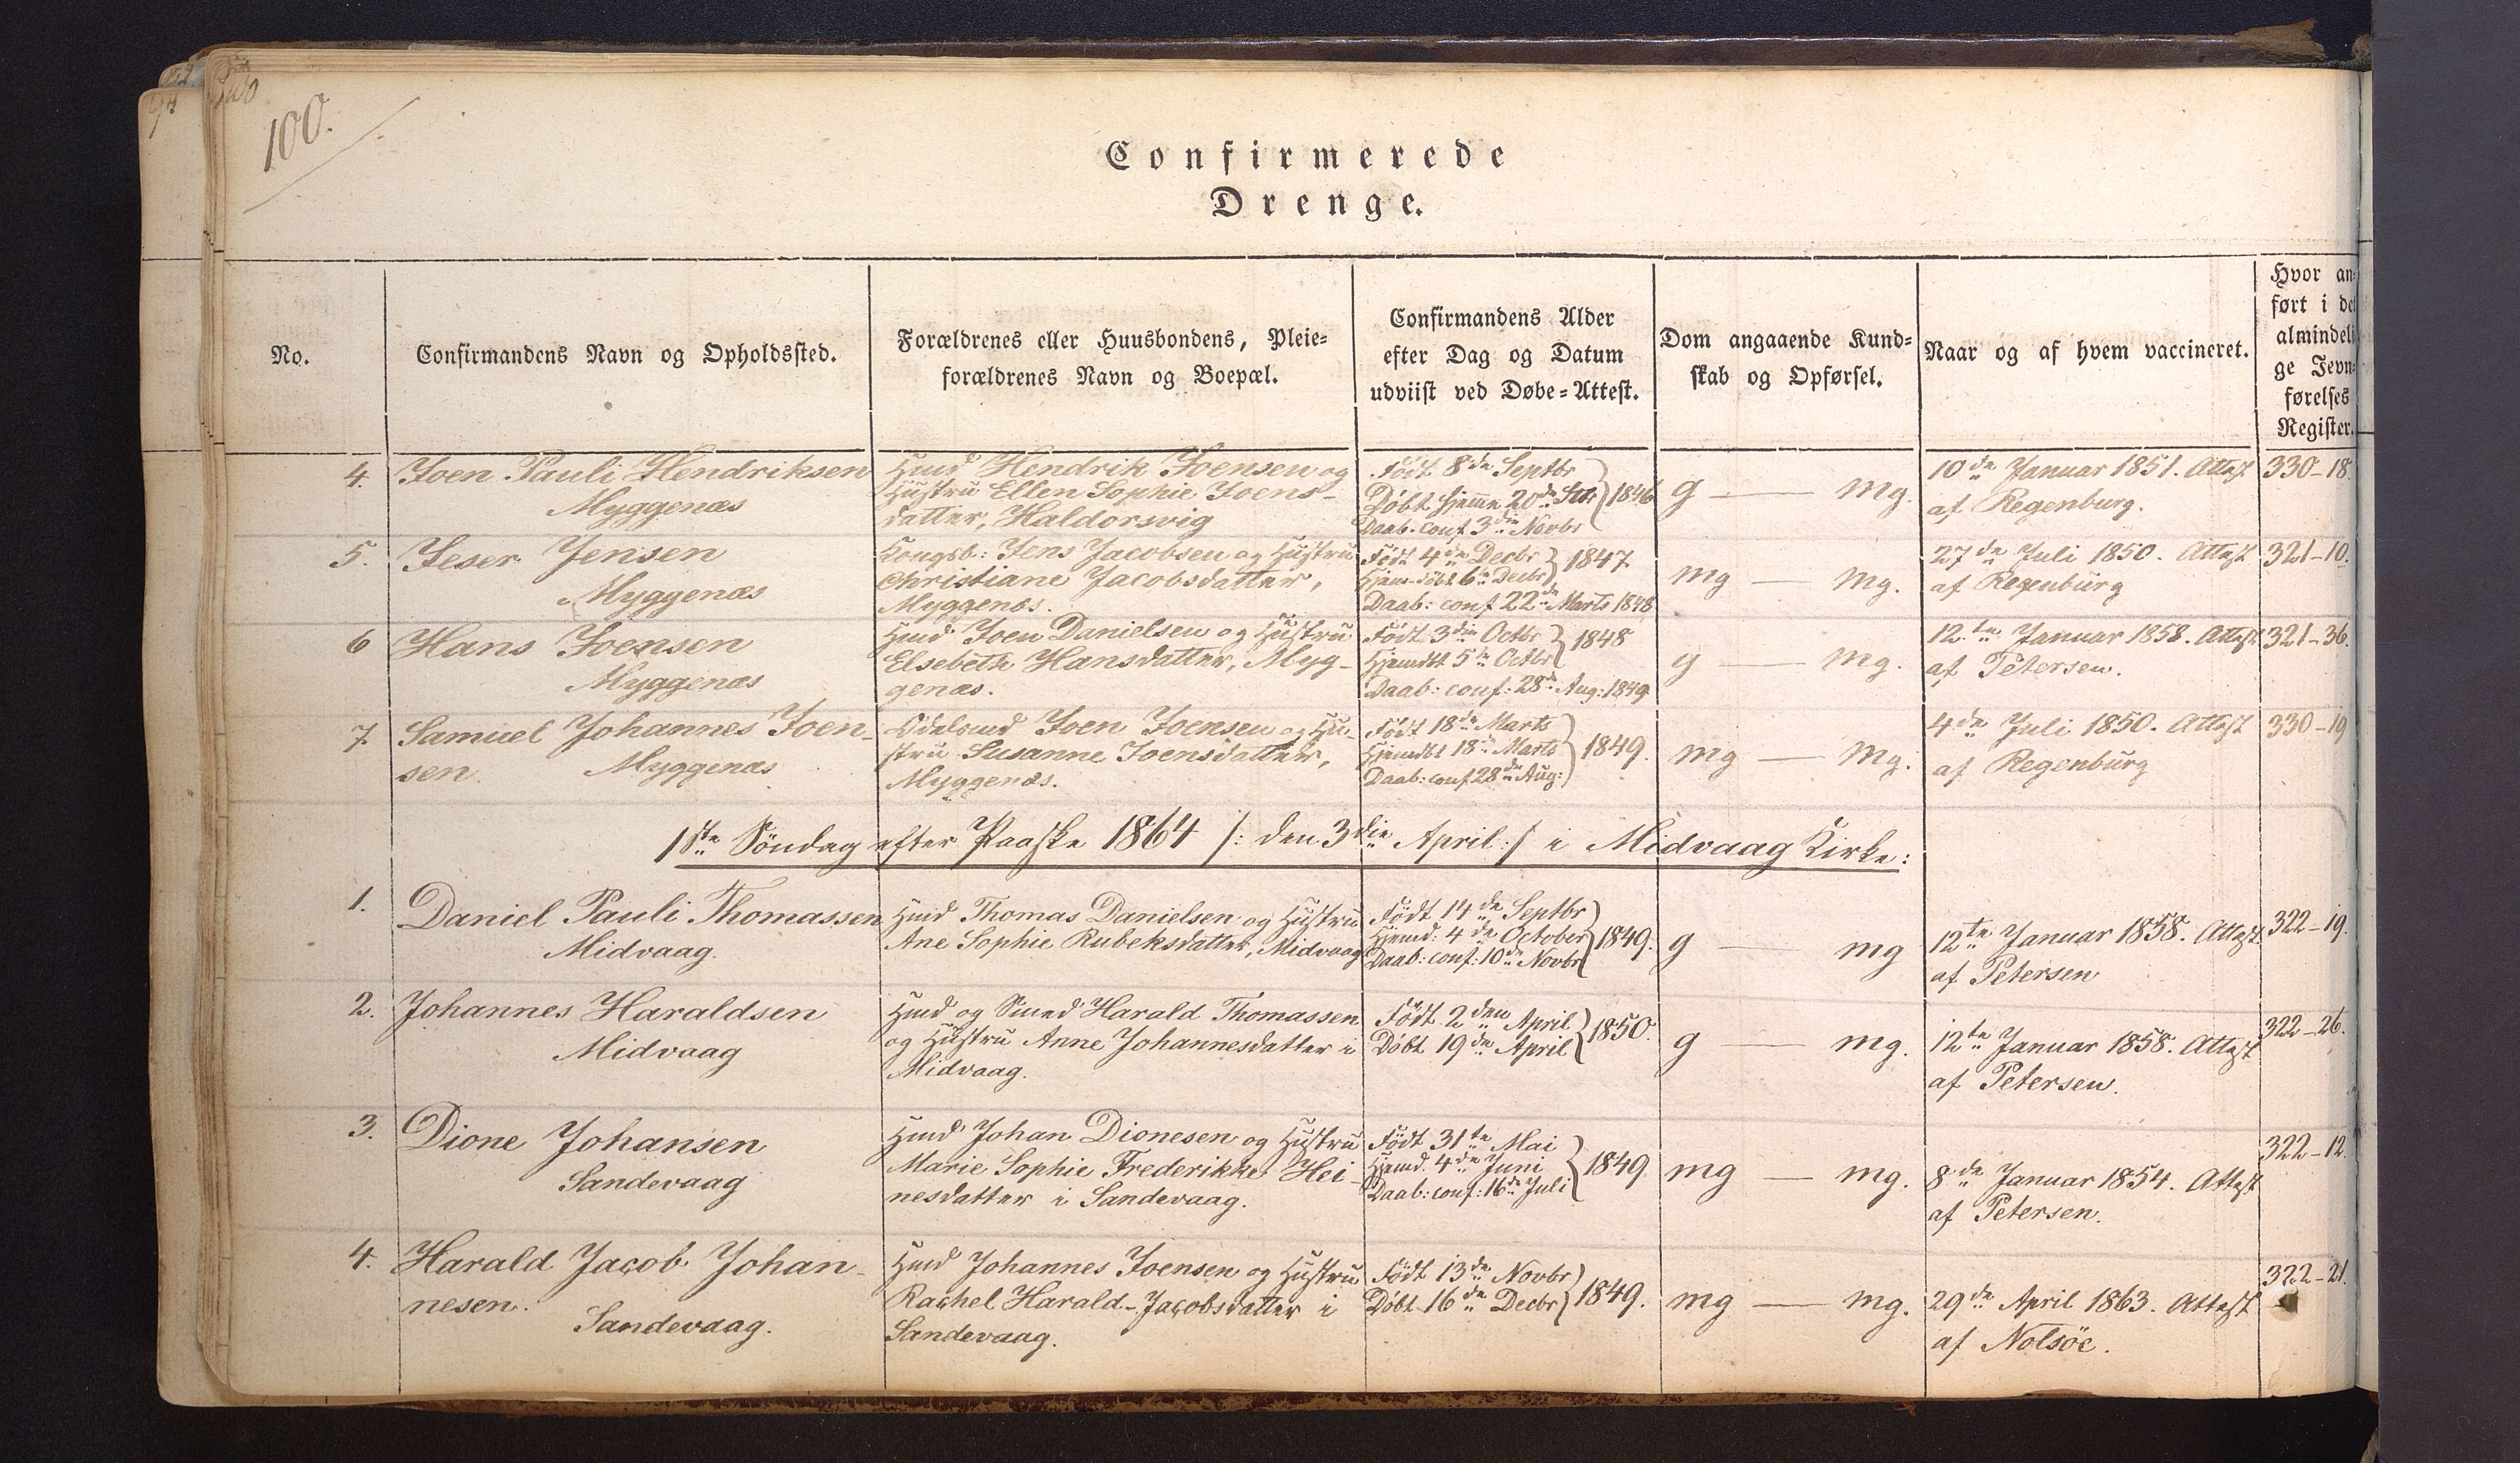 100.
Confirmerede
Drenge.
No.
Confirmandens Navn og Opholdssted.
Forældrenes eller Huusbondens, Pleie=
forældrenes Navn og Boepæl.
Confirmandens Alder
efter Dag og Datum
udviist ved Døbe=Attest.
Dom angaaende Kund=
skab og Opførsel.
Naar og af hvem vaccineret.
Hvor an=
ført i det
almindeli
ge Jevn=
førelses
Register.
4. Joen Pauli Hendriksen
Myggenæs
Hmd Hendrik Joensen og
Hustru Ellen Sophie Joens-
datter, Haldorsvig
Født 8de Septbr
Døbt hjemme 20de
Daab: conf 3die Novbr
1846
g — mg.
10de Januar 1851. Attest
af Regenburg.
330-18.
5. Jeser Jensen
Myggenæs
Kongsb: Jens Jacobsen og Hustru
Christiane Jacobsdatter,
Myggenæs.
Født 4de Decbr
Hjem-døbt 6te Decbr
1847
Daab: conf 22de Marts 1848
mg — mg.
27de Juli 1850. Attest
af Regenburg
321-10.
6 Hans Joensen
Myggenæs
Hmd Joen Danielsen og Hustru
Elsebeth Hansdatter, Myg-
genæs.
Født 3die Octbr
Hjemdbt 5te Octbr
1848
Daab: conf: 28de Aug: 1849
g — mg.
12te Januar 1858. Attest
af Petersen.
321-36.
7. Samuel Johannes Joen-
sen Myggenæs
Odelsmd Joen Joensen og Hu-
stru Susanne Joensdatter,
Myggenæs.
Født 18de Marts
Hjemdbt 18de Marts
Daab: conf 28de Aug:
1849.
mg — mg.
4de Juli 1850. Attest
af Regenburg
330-19
1ste Söndag efter Paaske 1864 /: den 3die April :/ i Midvaag Kirke:
1. Daniel Pauli Thomassen
Midvaag.
Hmd Thomas Danielsen og Hustru
Ane Sophie Rubeksdatter, Midvaag
Født 14de Septbr
Hjemd: 4de October
Daab: conf: 10de Novbr
1849.
g — mg
12te Januar 1858. Attest.
af Petersen
322-19.
2. Johannes Haraldsen
Midvaag
Hmd og Smed Harald Thomassen
og Hustru Anne Johannesdatter i
Midvaag.
Født 2den April
Døbt 19de April
1850.
g — mg.
12te Januar 1858. Attest
af Petersen.
322-26.
3. Dione Johansen
Sandevaag
Hmd Johan Dionesen og Hustru
Marie Sophie Frederikke Hei-
nesdatter i Sandevaag.
Født 31te Mai
Hjemd. 4de Juni
Daab: conf: 16de Juli
1849
mg — mg.
8de Januar 1854. Attest
af Petersen.
322-12.
4. Harald Jacob Johan-
nesen.
Sandevaag.
Hmd Johannes Joensen og Hustru
Rachel Harald-Jacobsdatter i
Sandevaag.
Født 13de Novbr
Døbt 16de Decbr
1849.
mg — mg.
29de April 1863. Attest
af Nolsöe.
322-21.